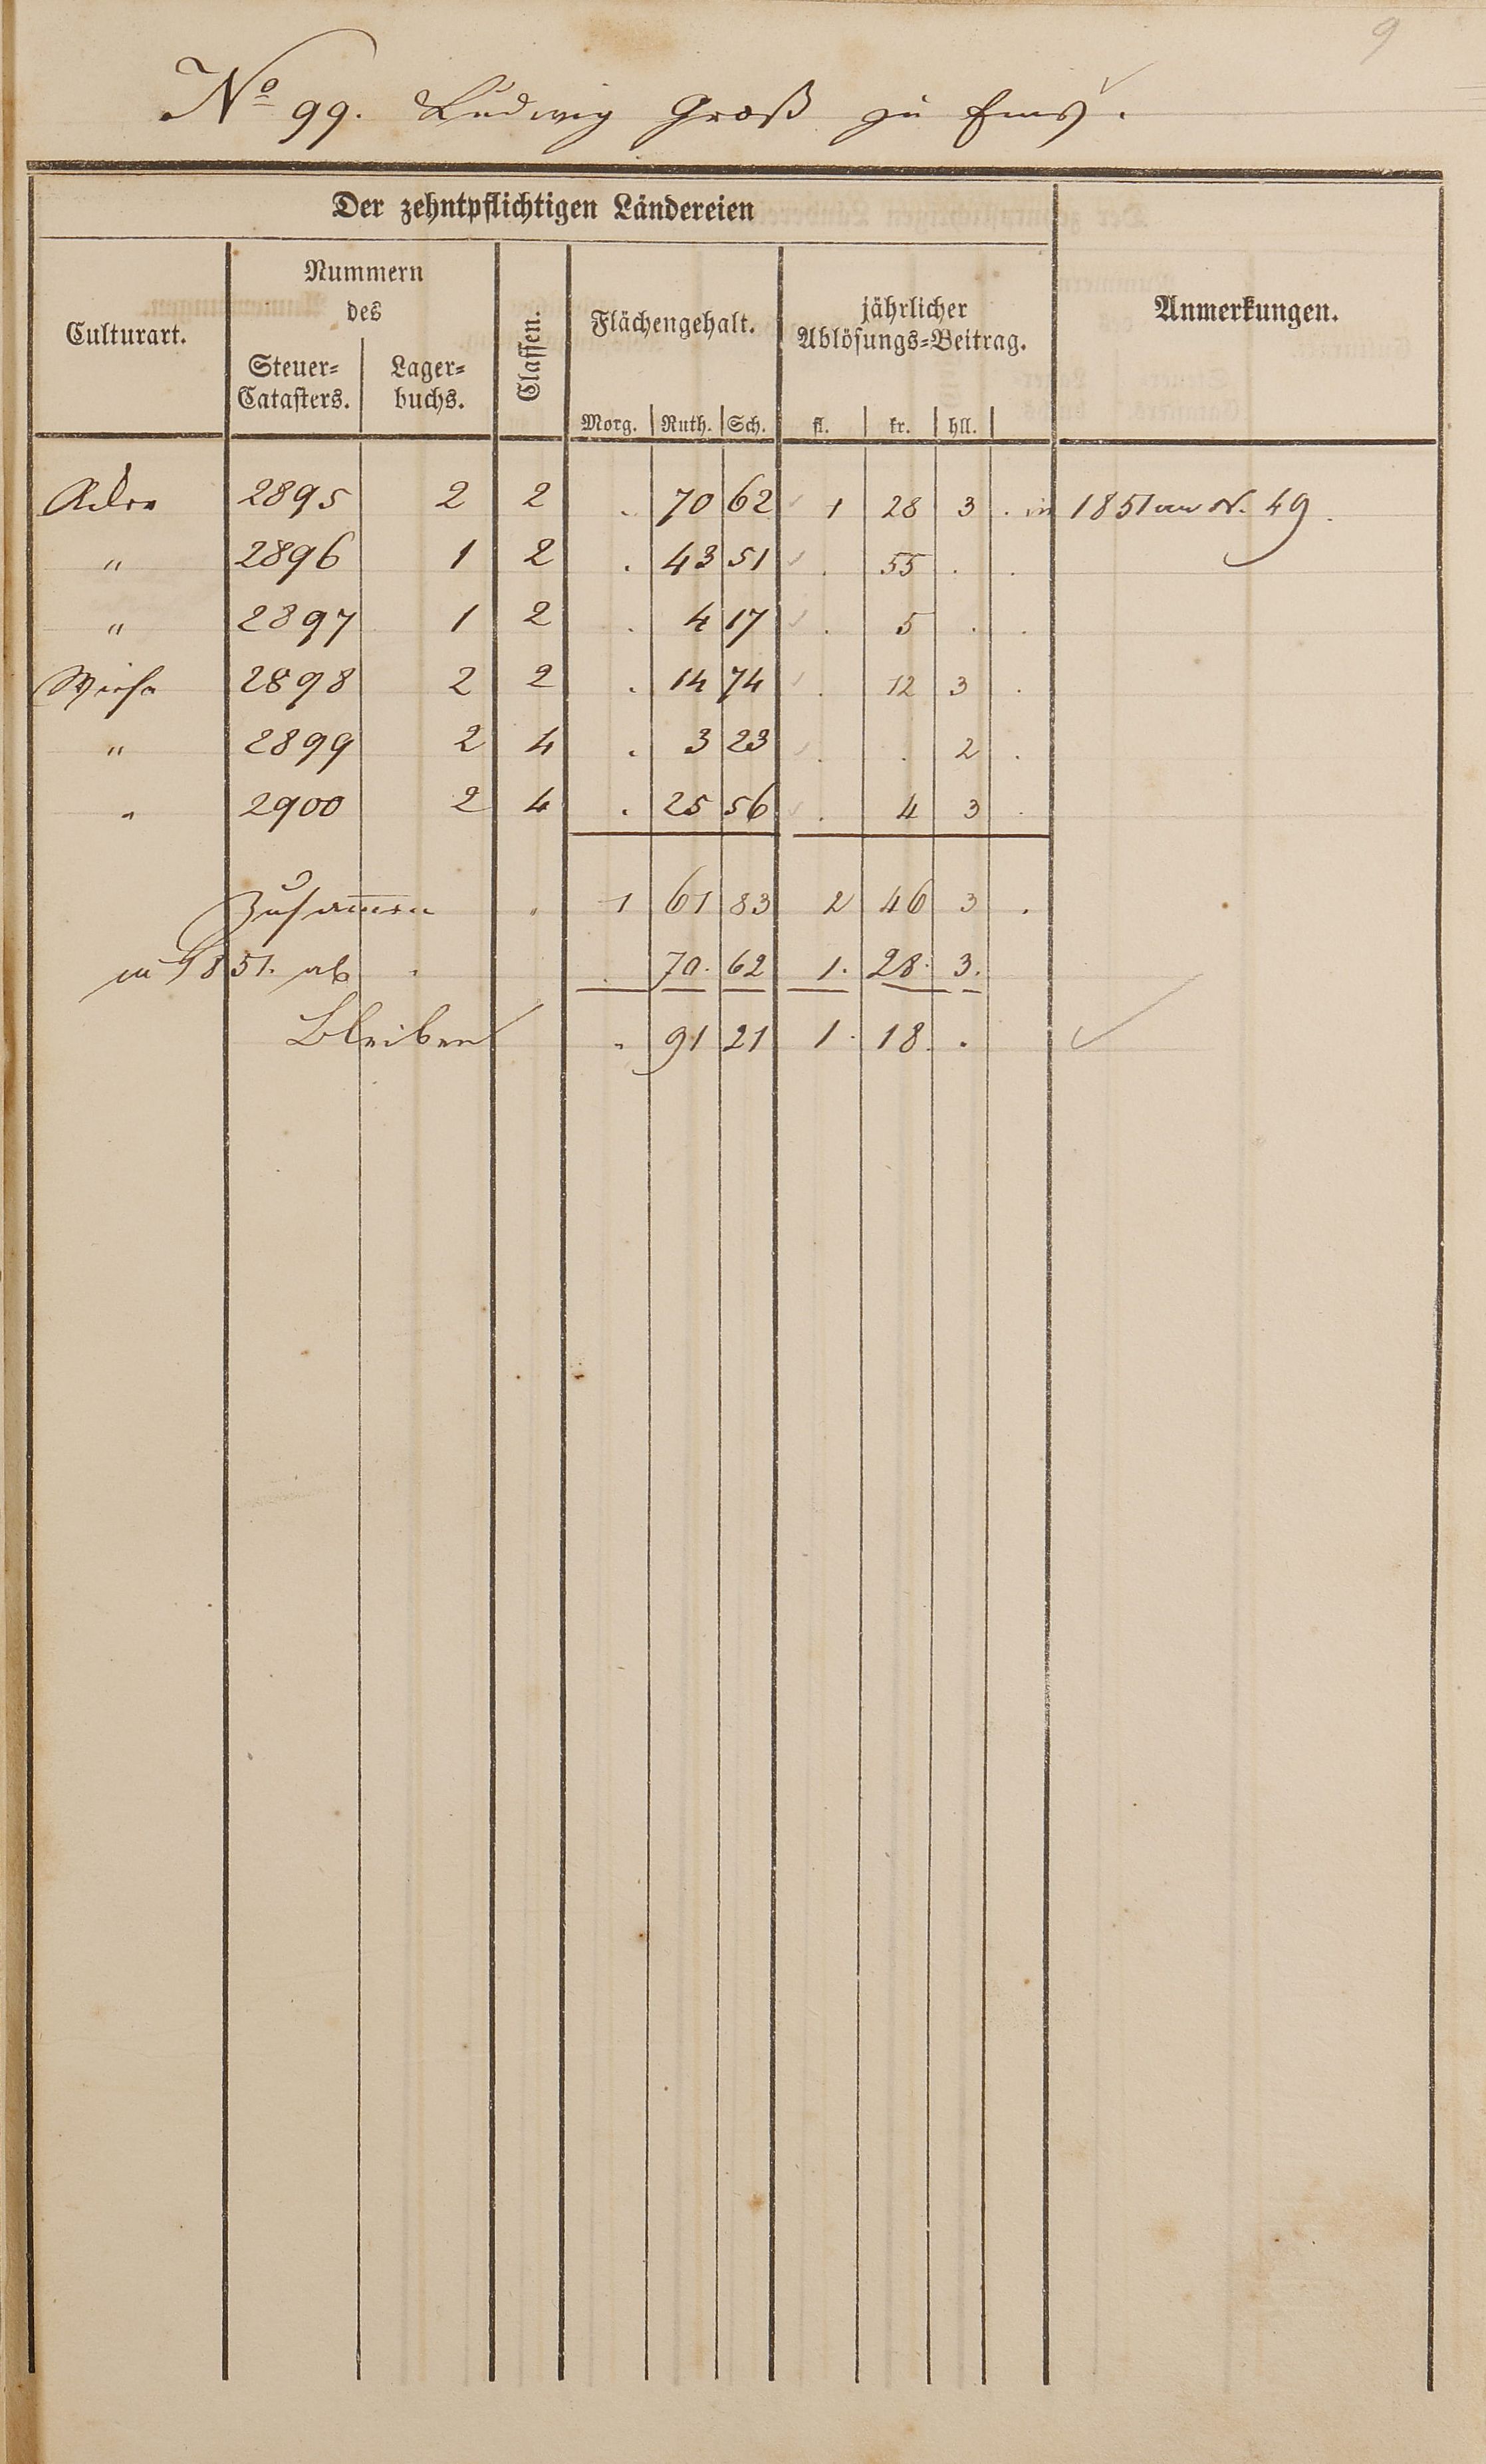 9
No 99. Ludwig Groß zu Ems.
Der zehntpflichtigen Ländereien
Culturart.
Nummern
des
Steuer=
Catasters.
Lager=
buchs.
Classen.
Flächengehalt.
Morg. Ruth. Sch.
jährlicher
Ablösungs=Beitrag.
fl. kr. hll.
Anmerkungen.
Acker 2895 2 2 . 70 62 1 28 3 . in 1851 an N. 49.
" 2896 1 2 . 43 51 . 55 . .
" 2897 1 2 . 4 17 . 5 . .
Wiese 2898 2 2 . 14 74 . 12 3 .
" 2899 2 4 . 3 23 . . 2 .
" 2900 2 4 . 25 56 . 4 3 .
Zusammen " 1 61 83 2 46 3 .
in 1851. ab . . 70. 62 1. 28. 3.
Bleiben . 91 21 1. 18. .